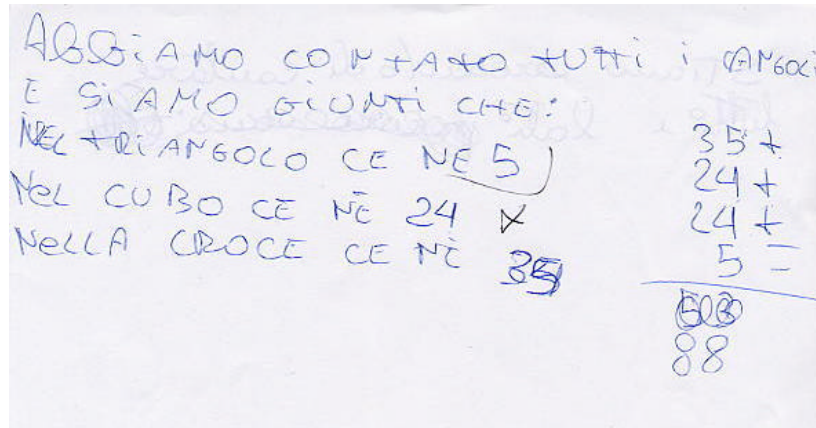 ABBIAMO CONTATO TUTTI I ANGOLI
E SIAMO GIUNTI CHE:
NEL TRIANGOLO CE NE 5
NEL CUBO CE NE 24 x
NELLA CROCE CE NE 35
35+
24+
24+
5=
88